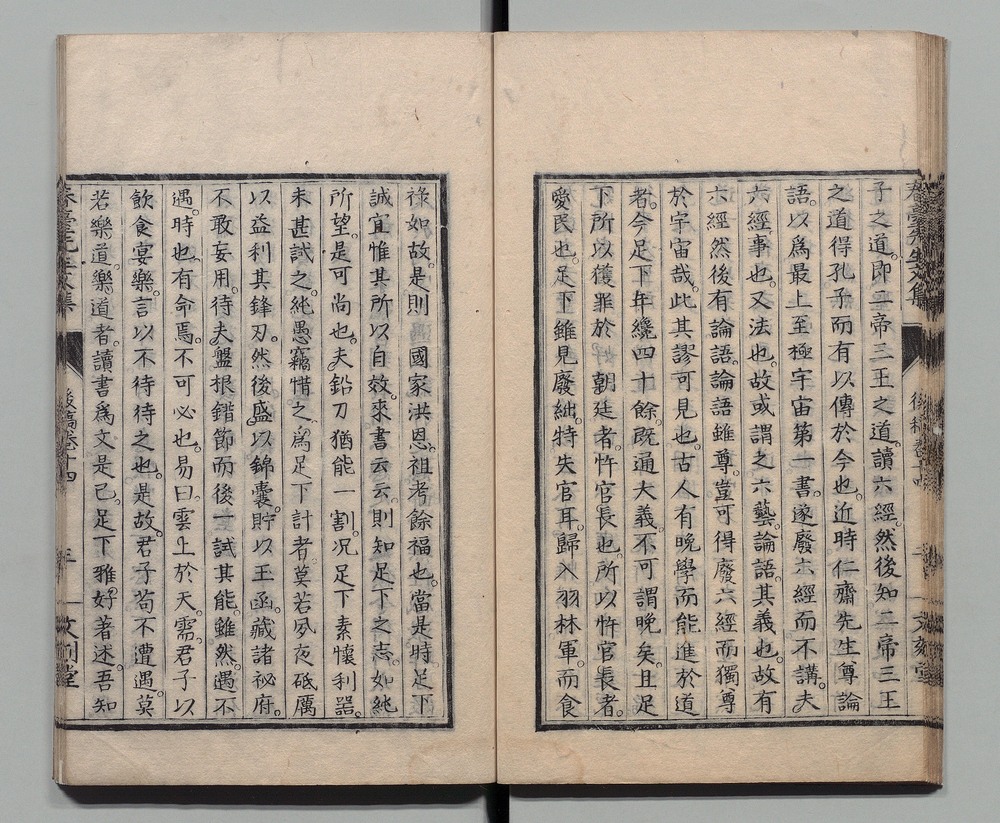 子之道。即二帝三王之道。讀六經。然後知二帝三王
之道得孔子而有以傳於今也。近時仁齋先生尊論
語。以爲最上至極宇宙第一書。遂廢六經而不講。夫
六經事也。又法也。故或謂之六藝。論語其義也。故有
六經然後有論語。論語雖尊。豈可得廢六經而獨尊
於宇宙哉。此其謬可見也。古人有晚學而能進於道
者。今足下年纔四十餘。既通大義。不可謂晚矣。且足
下所以獲罪於 朝廷者。忤官長也。所以忤官長者。
愛民也。足下雖見廢絀。特失官耳。歸入羽林軍。而食
祿如故。是則 國家洪恩。祖考餘福也。當是時。足下
誠宜惟其所以自效。來書云云。則知足下之志。如純
所望。是可尚也。夫鉛刀猶能一割。况足下素懷利器。
未甚試之。純愚竊惜之。爲足下計者。莫若夙夜砥厲
以益利其鋒刃。然後盛以錦囊。貯以玉函。藏諸祕府。
不敢妄用。待夫盤根錯節而後一試其能。雖然。遇不
遇。時也。有命焉。不可必也。易曰。雲上於天。需。君子以
飲食宴樂。言以不待待之也。是故。君子苟不遭遇。莫
若樂道。樂道者。讀書爲文是已。足下雅好著述。吾知
後稿卷十四